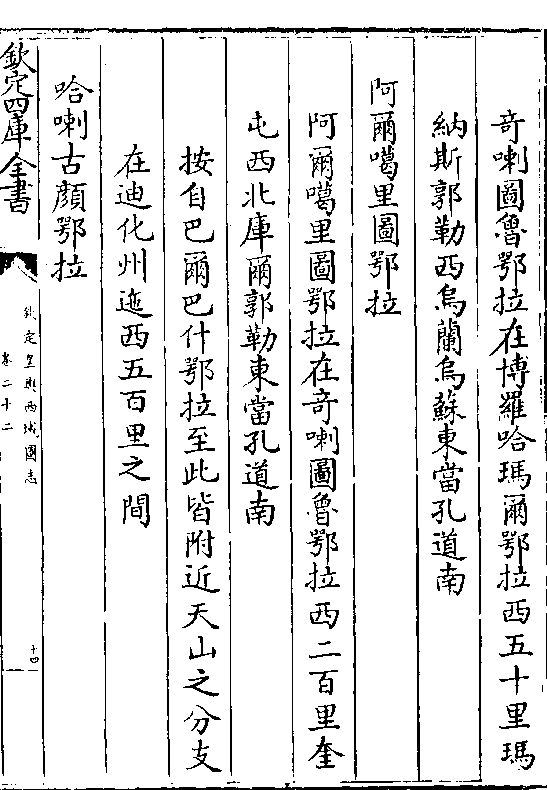 奇喇圖魯鄂拉在博羅哈瑪爾鄂拉西五十里瑪
納斯郭勒西烏蘭烏蘇東當孔道南
阿爾噶里圖鄂拉
阿爾噶里圖鄂拉在奇喇圖魯鄂拉西二百里奎
屯西北庫爾郭勒東當孔道南
按自巴爾巴什鄂拉至此皆附近天山之分支
在迪化州迤西五百里之間
哈喇古顔鄂拉
欽定四庫全書
欽定皇輿西域圖志
卷二十二
十四